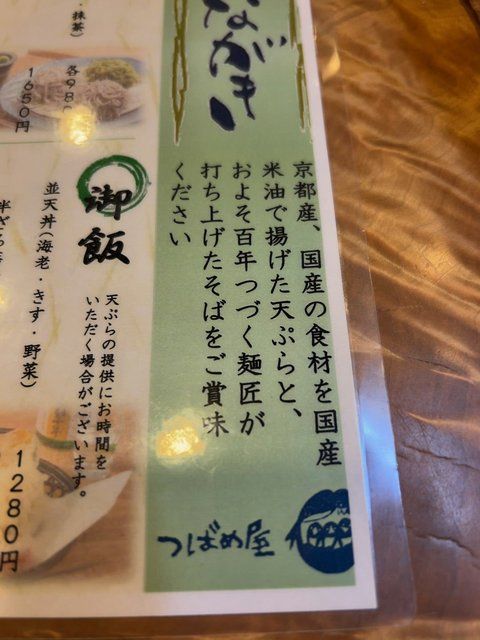 ながき
京都産、国産の食材を国産
米油で揚げた天ぷらと、
およそ百年つづく麺匠が
打ち上げたそばをご賞味
ください
つばめ屋
・抹茶)
1650円
御飯
天ぷらの提供にお時間を
いただく場合がございます。
並天丼(海老・きす・野菜)
1280円